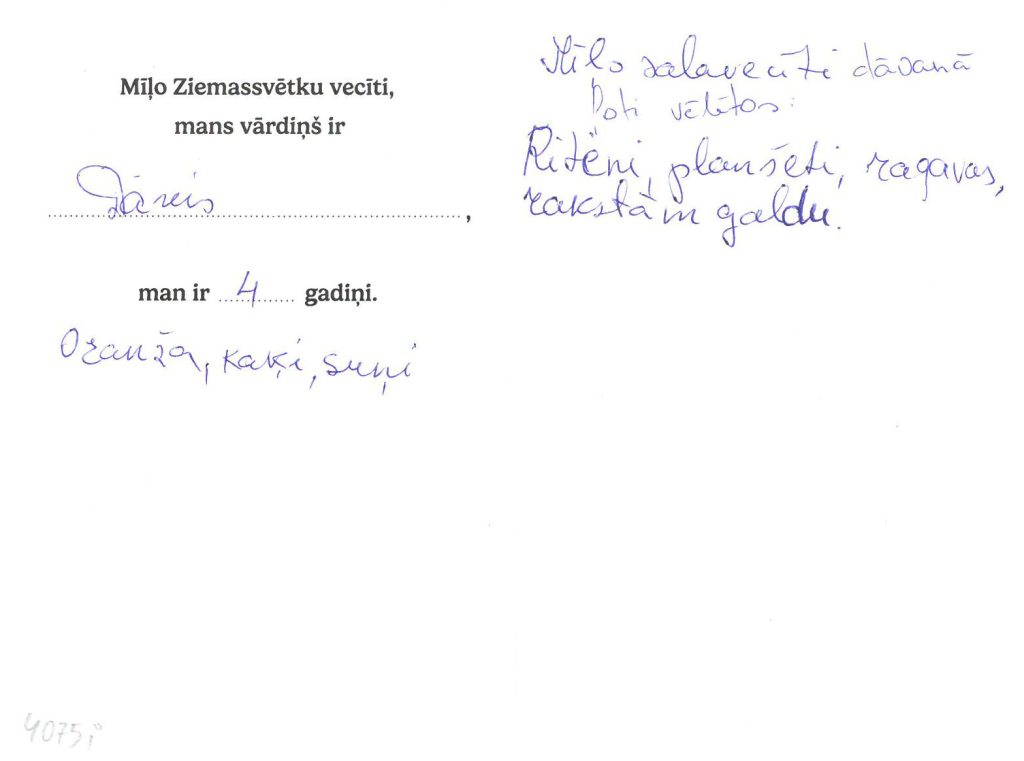 Mīļo Ziemassvētku vecīti,
mans vārdiņš ir
Dāreis,
man ir 4 gadiņi.
Oranža, kaķi, suņi
Mīļo salavecīti dāvanā
Ļoti vēlētos:
Ritēni, planšeti, ragavas,
rakstām galdu.
4075i